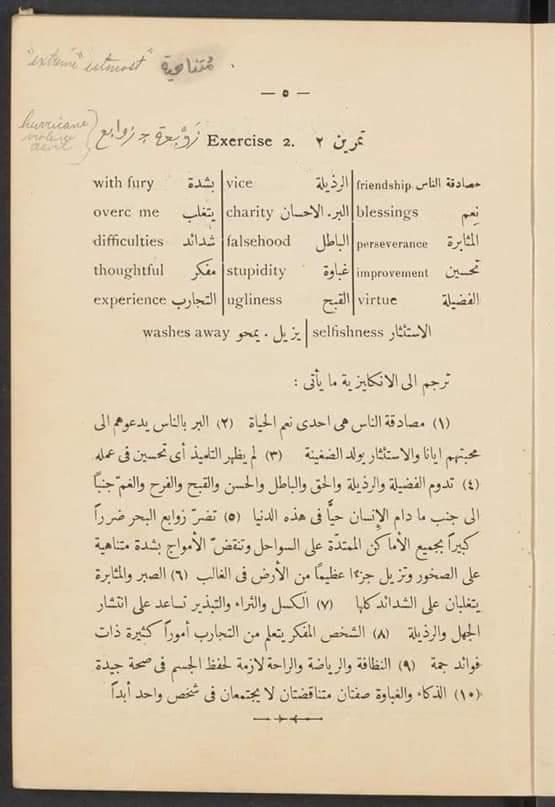 "extreme" utmost" مُتناهية
— ٥ —
hurricane
violence
devil
زَوْبعة ج زوابع Exercise 2. تمرين ٢
with fury بشدة vice الرذيلة friendship مصادقة الناس
overc me يتغلب charity البر. الاحسان blessings نِعم
difficulties شدائد falsehood الباطل perseverance المثابرة
thoughtful مفكر stupidity غباوة improvement تحسين
experience التجارب ugliness القبح virtue الفضيلة
washes away يزيل . يمحو selfishness الاستئثار
ترجم الى الانكليزية ما يأتى :
(١) مصادقة الناس هى احدى نعم الحياة (٢) البر بالناس يدعوهم الى
محبتهم ايانا والاستئثار يولد الضغينة (٣) لم يظهر التلميذ أى تحسين فى عمله
(٤) تدوم الفضيلة والرذيلة والحق والباطل والحسن والقبح والفرح والغمّ جنباً
الى جنب ما دام الإنسان حيًّا فى هذه الدنيا (٥) تضرّ زوابع البحر ضرراً
كبيراً بجميع الأماكن الممتدّة على السواحل وتنقضّ الأمواج بشدة متناهية
على الصخور وتزيل جزءا عظيمًا من الأرض فى الغالب (٦) الصبر والمثابرة
يتغلبان على الشدائد كلها (٧) الكسل والثراء والتبذير تساعد على انتشار
الجهل والرذيلة (٨) الشخص المفكر يتعلم من التجارب أموراً كثيرة ذات
فوائد جمة (٩) النظافة والرياضة والراحة لازمة لحفظ الجسم فى صحة جيدة
(١٠) الذكاء والغباوة صفتان متناقضتان لا يجتمعان فى شخص واحد أبداً